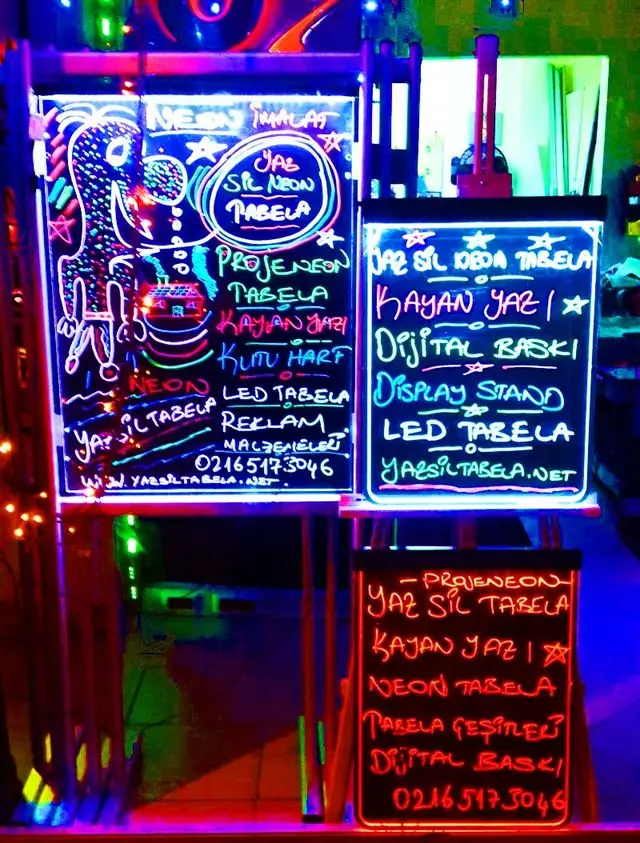 NEON İMALAT
YAZ
SİL NEON
TABELA
PROJENEON
TABELA
KAYAN YAZI
KUTU HARF
NEON
LED TABELA
YAZSİLTABELA
REKLAM
MALZEMELERİ
02165173046
www.YAZSİLTABELA.NET
YAZ SİL NEON TABELA
KAYAN YAZI
DİJİTAL BASKI
DISPLAY STAND
LED TABELA
YAZSİLTABELA.NET
- PROJENEON
YAZ SİL TABELA
KAYAN YAZI
NEON TABELA
TABELA ÇEŞİTLERİ
DİJİTAL BASKI
02165173046